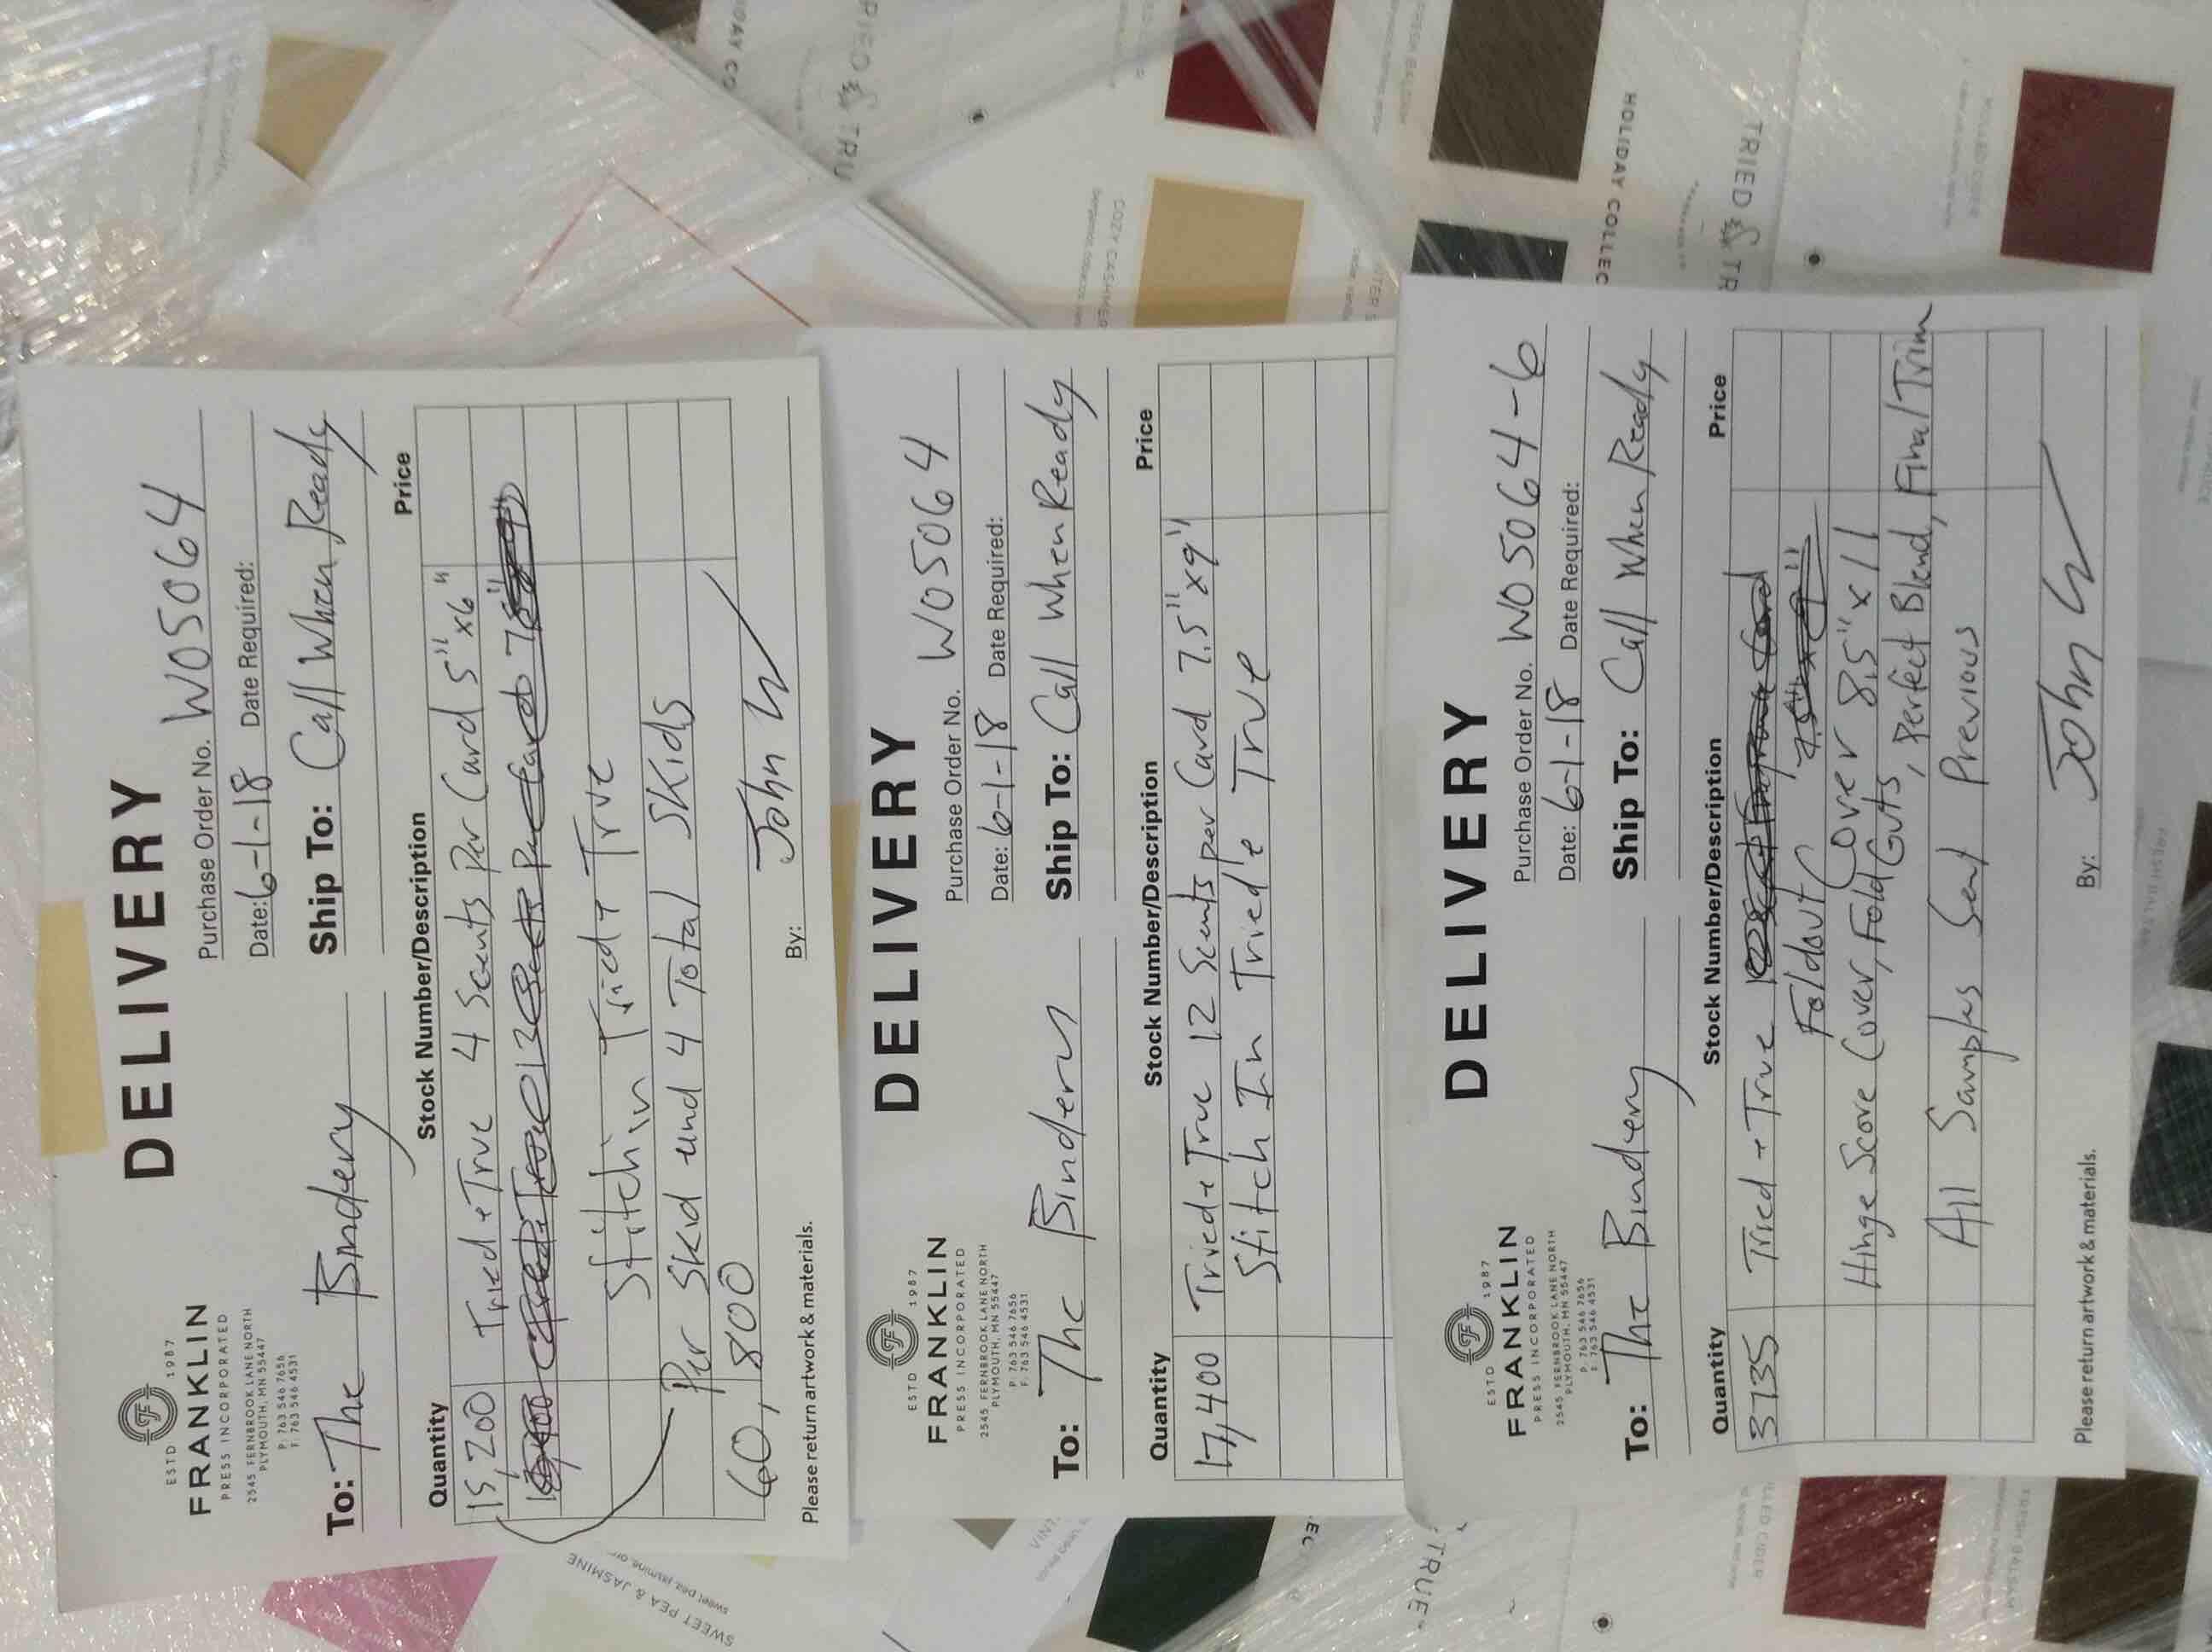 ESTD 1987
FRANKLIN
PRESS INCORPORATED
2545 FERNBROOK LANE NORTH
PLYMOUTH, MN 55447
P: 763 546 7656
F: 763 546 4531
DELIVERY
Purchase Order No. W05064
Date: 6-1-18 Date Required:
To: The Bindery
Ship To: Call When Ready
Quantity Stock Number/Description Price
15,200 Tried + True 4 Scents Per Card 5" x6"
Stitch in Tried + True
Per Skid and 4 Total Skids
60,800
Please return artwork & materials.
By: John W
ESTD 1987
FRANKLIN
PRESS INCORPORATED
2545 FERNBROOK LANE NORTH
PLYMOUTH, MN 55447
P: 763 546 7656
F: 763 546 4531
DELIVERY
Purchase Order No. W05064
Date: 6-1-18 Date Required:
To: The Bindery
Ship To: Call When Ready
Quantity Stock Number/Description Price
17,400 Tried + True 12 Scents per Card 7.5" x9"
Stitch In Tried & True
ESTD 1987
FRANKLIN
PRESS INCORPORATED
2545 FERNBROOK LANE NORTH
PLYMOUTH, MN 55447
P: 763 546 7656
F: 763 546 4531
DELIVERY
Purchase Order No. W05064-6
Date: 6-1-18 Date Required:
To: The Bindery
Ship To: Call When Ready
Quantity Stock Number/Description Price
3735 Tried + True
Foldout Cover 8.5" x 11
Hinge Score Cover, Fold Guts, Perfect Blend, Final Trim
All Samples Sent Previous
Please return artwork & materials.
By: John W
HOLIDAY COLLEC
TRIED & TR
COZY CASHMER
SWEET PEA & JASMINE
TRUE